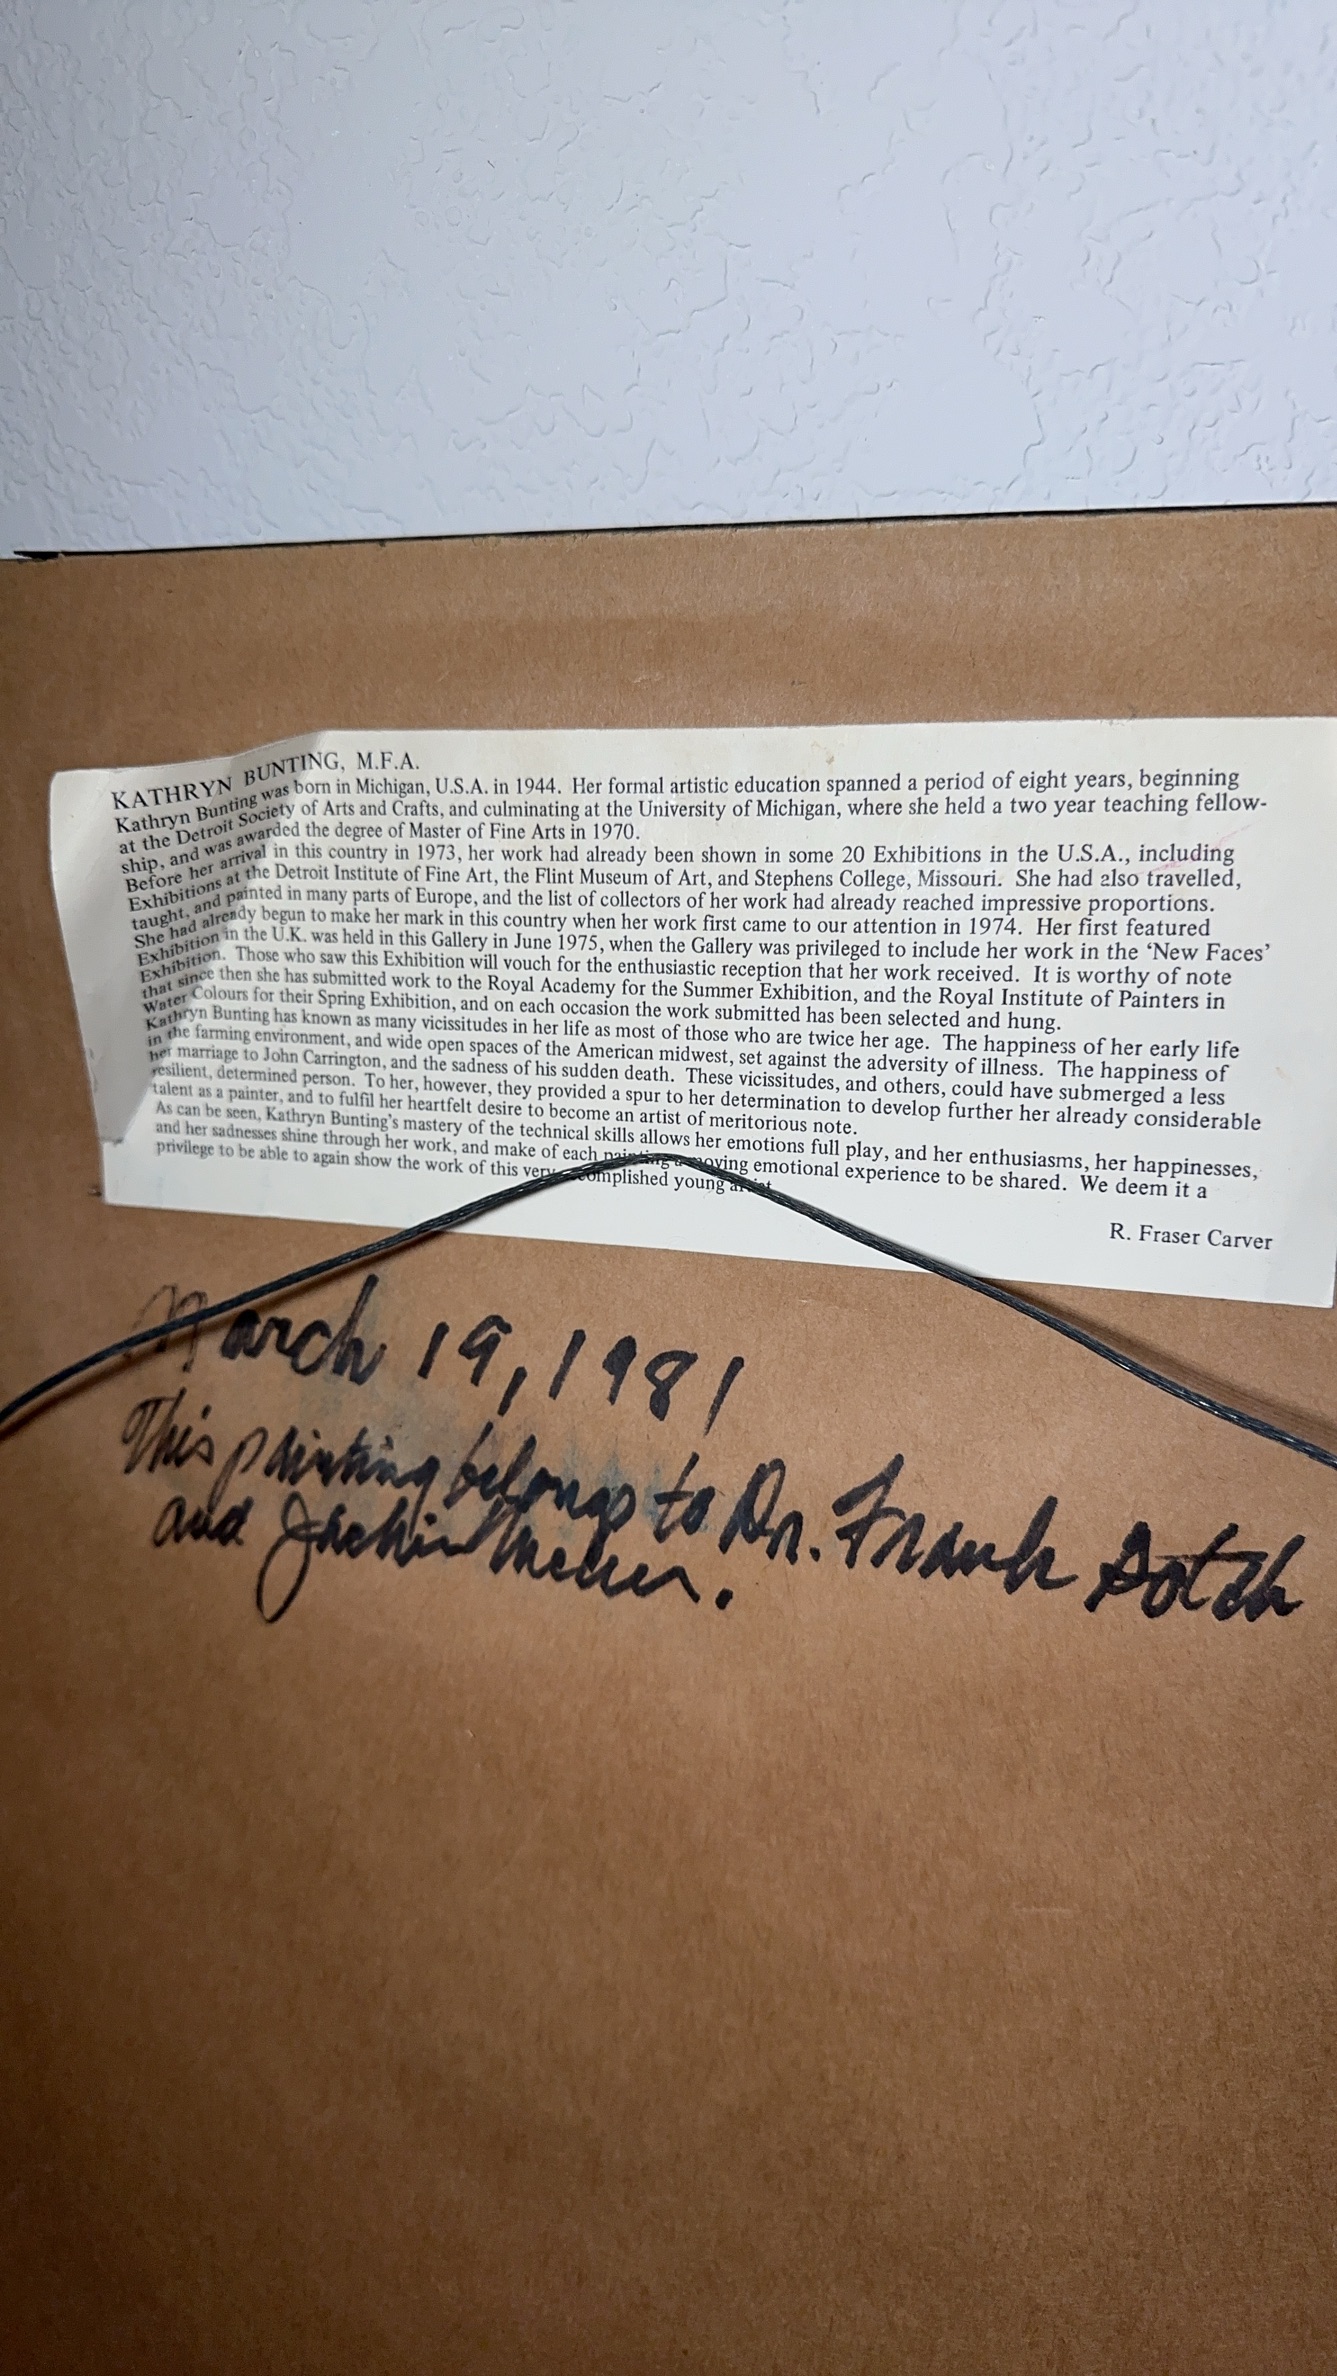 KATHRYN BUNTING, M.F.A.
Kathryn Bunting was born in Michigan, U.S.A. in 1944. Her formal artistic education spanned a period of eight years, beginning
at the Detroit Society of Arts and Crafts, and culminating at the University of Michigan, where she held a two year teaching fellow-
ship, and was awarded the degree of Master of Fine Arts in 1970.
Before her arrival in this country in 1973, her work had already been shown in some 20 Exhibitions in the U.S.A., including
Exhibitions at the Detroit Institute of Fine Art, the Flint Museum of Art, and Stephens College, Missouri. She had also travelled,
taught, and painted in many parts of Europe, and the list of collectors of her work had already reached impressive proportions.
She had already begun to make her mark in this country when her work first came to our attention in 1974. Her first featured
Exhibition in the U.K. was held in this Gallery in June 1975, when the Gallery was privileged to include her work in the ‘New Faces’
Exhibition. Those who saw this Exhibition will vouch for the enthusiastic reception that her work received. It is worthy of note
that since then she has submitted work to the Royal Academy for the Summer Exhibition, and the Royal Institute of Painters in
Water Colours for their Spring Exhibition, and on each occasion the work submitted has been selected and hung.
Kathryn Bunting has known as many vicissitudes in her life as most of those who are twice her age. The happiness of her early life
in the farming environment, and wide open spaces of the American midwest, set against the adversity of illness. The happiness of
her marriage to John Carrington, and the sadness of his sudden death. These vicissitudes, and others, could have submerged a less
resilient, determined person. To her, however, they provided a spur to her determination to develop further her already considerable
talent as a painter, and to fulfil her heartfelt desire to become an artist of meritorious note.
As can be seen, Kathryn Bunting's mastery of the technical skills allows her emotions full play, and her enthusiasms, her happinesses,
and her sadnesses shine through her work, and make of each painting a moving emotional experience to be shared. We deem it a
privilege to be able to again show the work of this very accomplished young artist.
R. Fraser Carver
March 19, 1981
This painting belongs to Dr. Frank Gotch
and Jackie